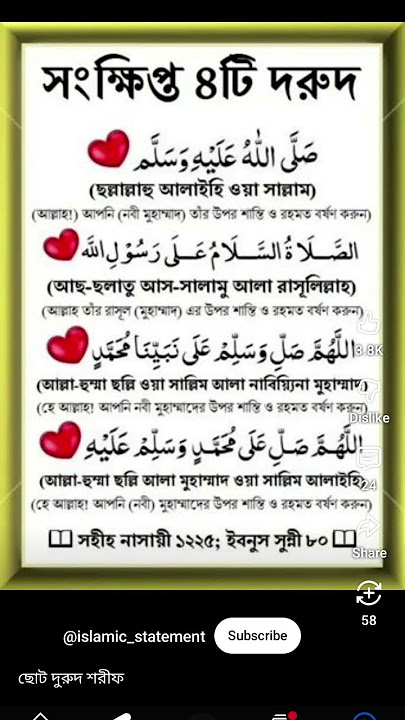 সংক্ষিপ্ত ৪টি দরুদ
صَلَّى اللّٰهُ عَلَيْهِ وَسَلَّم
(ছল্লাল্লাহু আলাইহি ওয়া সাল্লাম)
(আল্লাহ!) আপনি (নবী মুহাম্মাদ) তাঁর উপর শান্তি ও রহমত বর্ষণ করুন)
الصَّلَاةُ السَّلَامُ عَلَى رَسُوْلِ اللّٰه
(আছ-ছলাতু আস-সালামু আলা রাসূলিল্লাহ)
(আল্লাহ তাঁর রাসূল (মুহাম্মাদ) এর উপর শান্তি ও রহমত বর্ষণ করুন)
اللَّهُمَّ صَلِّ وَسَلِّمْ عَلَى نَبَيِّنَا مُحَمَّدٍ
3.8K
(আল্লা-হুম্মা ছল্লি ওয়া সাল্লিম আলা নাবিয়্যিনা মুহাম্মাদ)
(হে আল্লাহ! আপনি নবী মুহাম্মাদের উপর শান্তি ও রহমত বর্ষণ করুন)
Dislike
اللَّهُمَّ صَلِّ عَلَى مُحَمَّدٍ وَسَلِّمْ عَلَيْهِ
(আল্লা-হুম্মা ছল্লি আলা মুহাম্মাদ ওয়া সাল্লিম আলাইহি)
24
(হে আল্লাহ! আপনি (নবী) মুহাম্মাদের উপর শান্তি ও রহমত বর্ষণ করুন)
সহীহ নাসায়ী ১২২৫; ইবনুস সুন্নী ৮০
Share
58
@islamic_statement
Subscribe
ছোট দুরুদ শরীফ